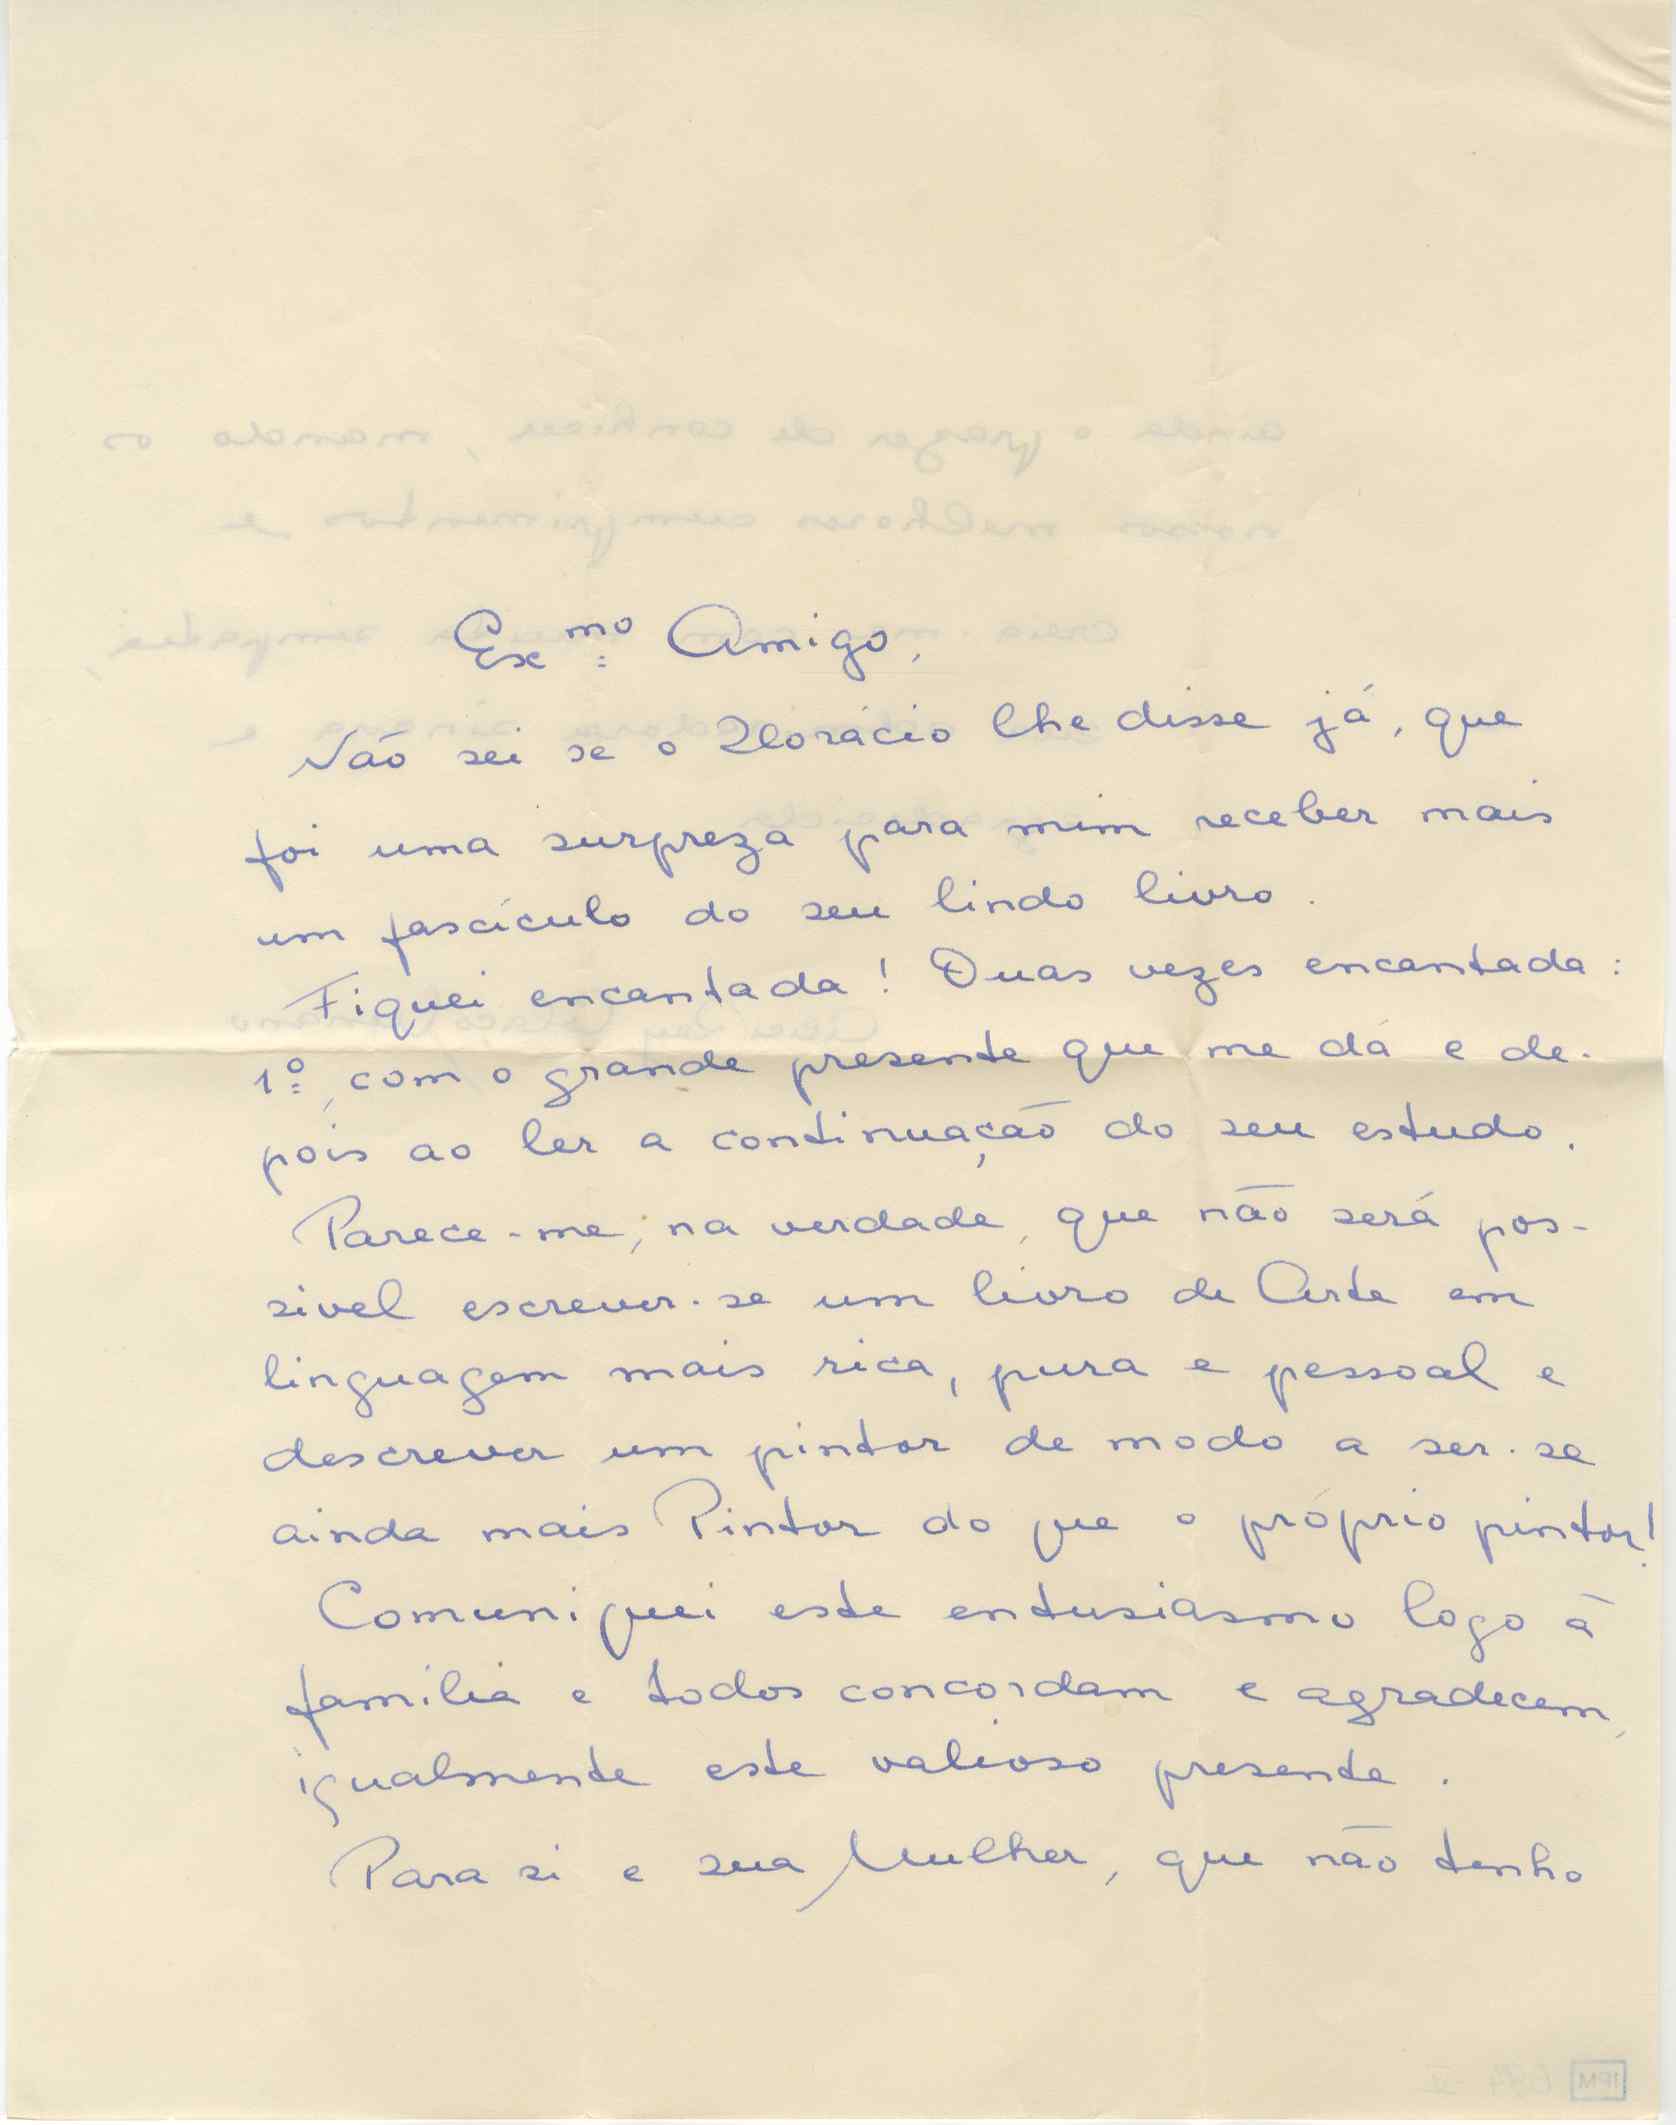 Ex.mo Amigo,
Não sei se o Horácio lhe disse já, que
foi uma surpreza para mim receber mais
um fascículo do seu lindo livro.
Fiquei encantada! Duas vezes encantada:
1º, com o grande presente que me dá e de-
pois ao ler a continuação do seu estudo.
Parece-me, na verdade, que não será pos-
sivel escrever-se um livro de Arte em
linguagem mais rica, pura e pessoal e
descrever um pintor de modo a ser-se
ainda mais Pintor do que o próprio pintor!
Comuniquei este entusiasmo logo à
família e todos concordam e agradecem,
igualmente este valioso presente.
Para si e sua Mulher, que não tenho